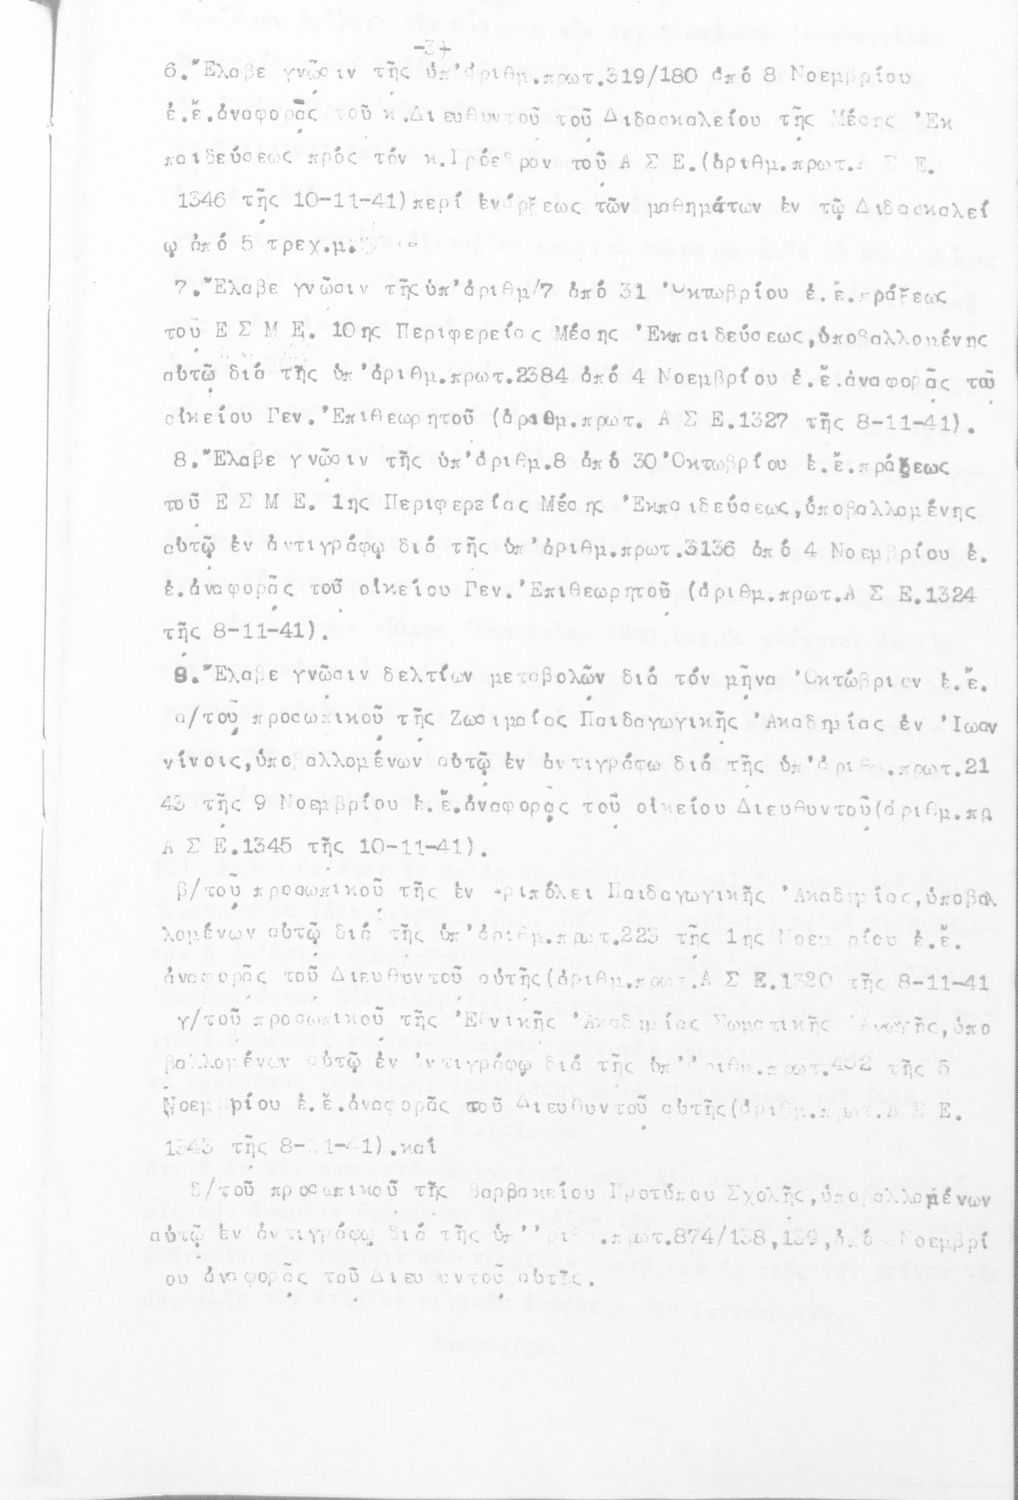 -3-
6. Ἔλαβε γνῶσιν τῆς ὑπ' ἀριθμ.πρωτ.319/180 ἀπό 8 Νοεμβρίου
ἐ.ἔ.ἀναφορᾶς τοῦ κ.Διευθυντοῦ τοῦ Διδασκαλείου τῆς Μέσης Ἐκ
παιδεύσεως πρός τόν κ.Πρόεδρον τοῦ Α Σ Ε.(ἀριθμ.πρωτ.Α Σ Ε.
1346 τῆς 10-11-41)περί ἐνάρξεως τῶν μαθημάτων ἐν τῷ Διδασκαλεί
ῳ ἀπό 5 τρεχ.μ.
7. Ἔλαβε γνῶσιν τῆς ὑπ' ἀριθμ/7 ἀπό 31 Ὀκτωβρίου ἐ.ἔ.πράξεως
τοῦ Ε Σ Μ Ε. 10ης Περιφερείας Μέσης Ἐκπαιδεύσεως,ὑποβαλλομένης
αὐτῷ διά τῆς ὑπ' ἀριθμ.πρωτ.2384 ἀπό 4 Νοεμβρίου ἐ.ἔ.ἀναφορᾶς τοῦ
οἰκείου Γεν. Ἐπιθεωρητοῦ (ἀριθμ.πρωτ. Α Σ Ε.1327 τῆς 8-11-41).
8. Ἔλαβε γνῶσιν τῆς ὑπ' ἀριθμ.8 ἀπό 30 Ὀκτωβρίου ἐ.ἔ.πράξεως
τοῦ Ε Σ Μ Ε. 1ης Περιφερείας Μέσης Ἐκπαιδεύσεως,ὑποβαλλομένης
αὐτῷ ἐν ἀντιγράφῳ διά τῆς ὑπ' ἀριθμ.πρωτ.3136 ἀπό 4 Νοεμβρίου ἐ.
ἐ.ἀναφορᾶς τοῦ οἰκείου Γεν. Ἐπιθεωρητοῦ (ἀριθμ.πρωτ.Α Σ Ε.1324
τῆς 8-11-41).
9. Ἔλαβε γνῶσιν δελτίων μεταβολῶν διά τόν μῆνα Ὀκτώβριον ἐ.ἔ.
α/τοῦ προσωπικοῦ τῆς Ζωσιμαίας Παιδαγωγικῆς Ἀκαδημίας ἐν Ἰωαν
νίνοις,ὑποβαλλομένων αὐτῷ ἐν ἀντιγράφω διά τῆς ὑπ' ἀριθμ.πρωτ.21
43 τῆς 9 Νοεμβρίου ἐ.ἔ.ἀναφορᾶς τοῦ οἰκείου Διευθυντοῦ(ἀριθμ.πρ
Α Σ Ε.1345 τῆς 10-11-41).
β/τοῦ προσωπικοῦ τῆς ἐν Τριπόλει Παιδαγωγικῆς Ἀκαδημίας,ὑποβαλ
λομένων αὐτῷ διά τῆς ὑπ' ἀριθμ.πρωτ.223 τῆς 1ης Νοεμβρίου ἐ.ἔ.
ἀναφορᾶς τοῦ Διευθυντοῦ αὐτῆς(ἀριθμ.πρωτ.Α Σ Ε.1320 τῆς 8-11-41
γ/τοῦ προσωπικοῦ τῆς Ἐθνικῆς Ἀκαδημίας Σωματικῆς Ἀγωγῆς,ὑπο
βαλλομένων αὐτῷ ἐν ἀντιγράφῳ διά τῆς ὑπ' ἀριθμ.πρωτ.402 τῆς 5
Νοεμβρίου ἐ.ἔ.ἀναφορᾶς τοῦ Διευθυντοῦ αὐτῆς(ἀριθμ.πρωτ.Α Σ Ε.
1343 τῆς 8-11-41).καί
δ/τοῦ προσωπικοῦ τῆς Βαρβακείου Προτύπου Σχολῆς,ὑποβαλλομένων
αὐτῷ ἐν ἀντιγράφῳ διά τῆς ὑπ' ἀριθμ.πρωτ.874/138,139,ἀπό Νοεμβρί
ου ἀναφορᾶς τοῦ Διευθυντοῦ αὐτῆς.